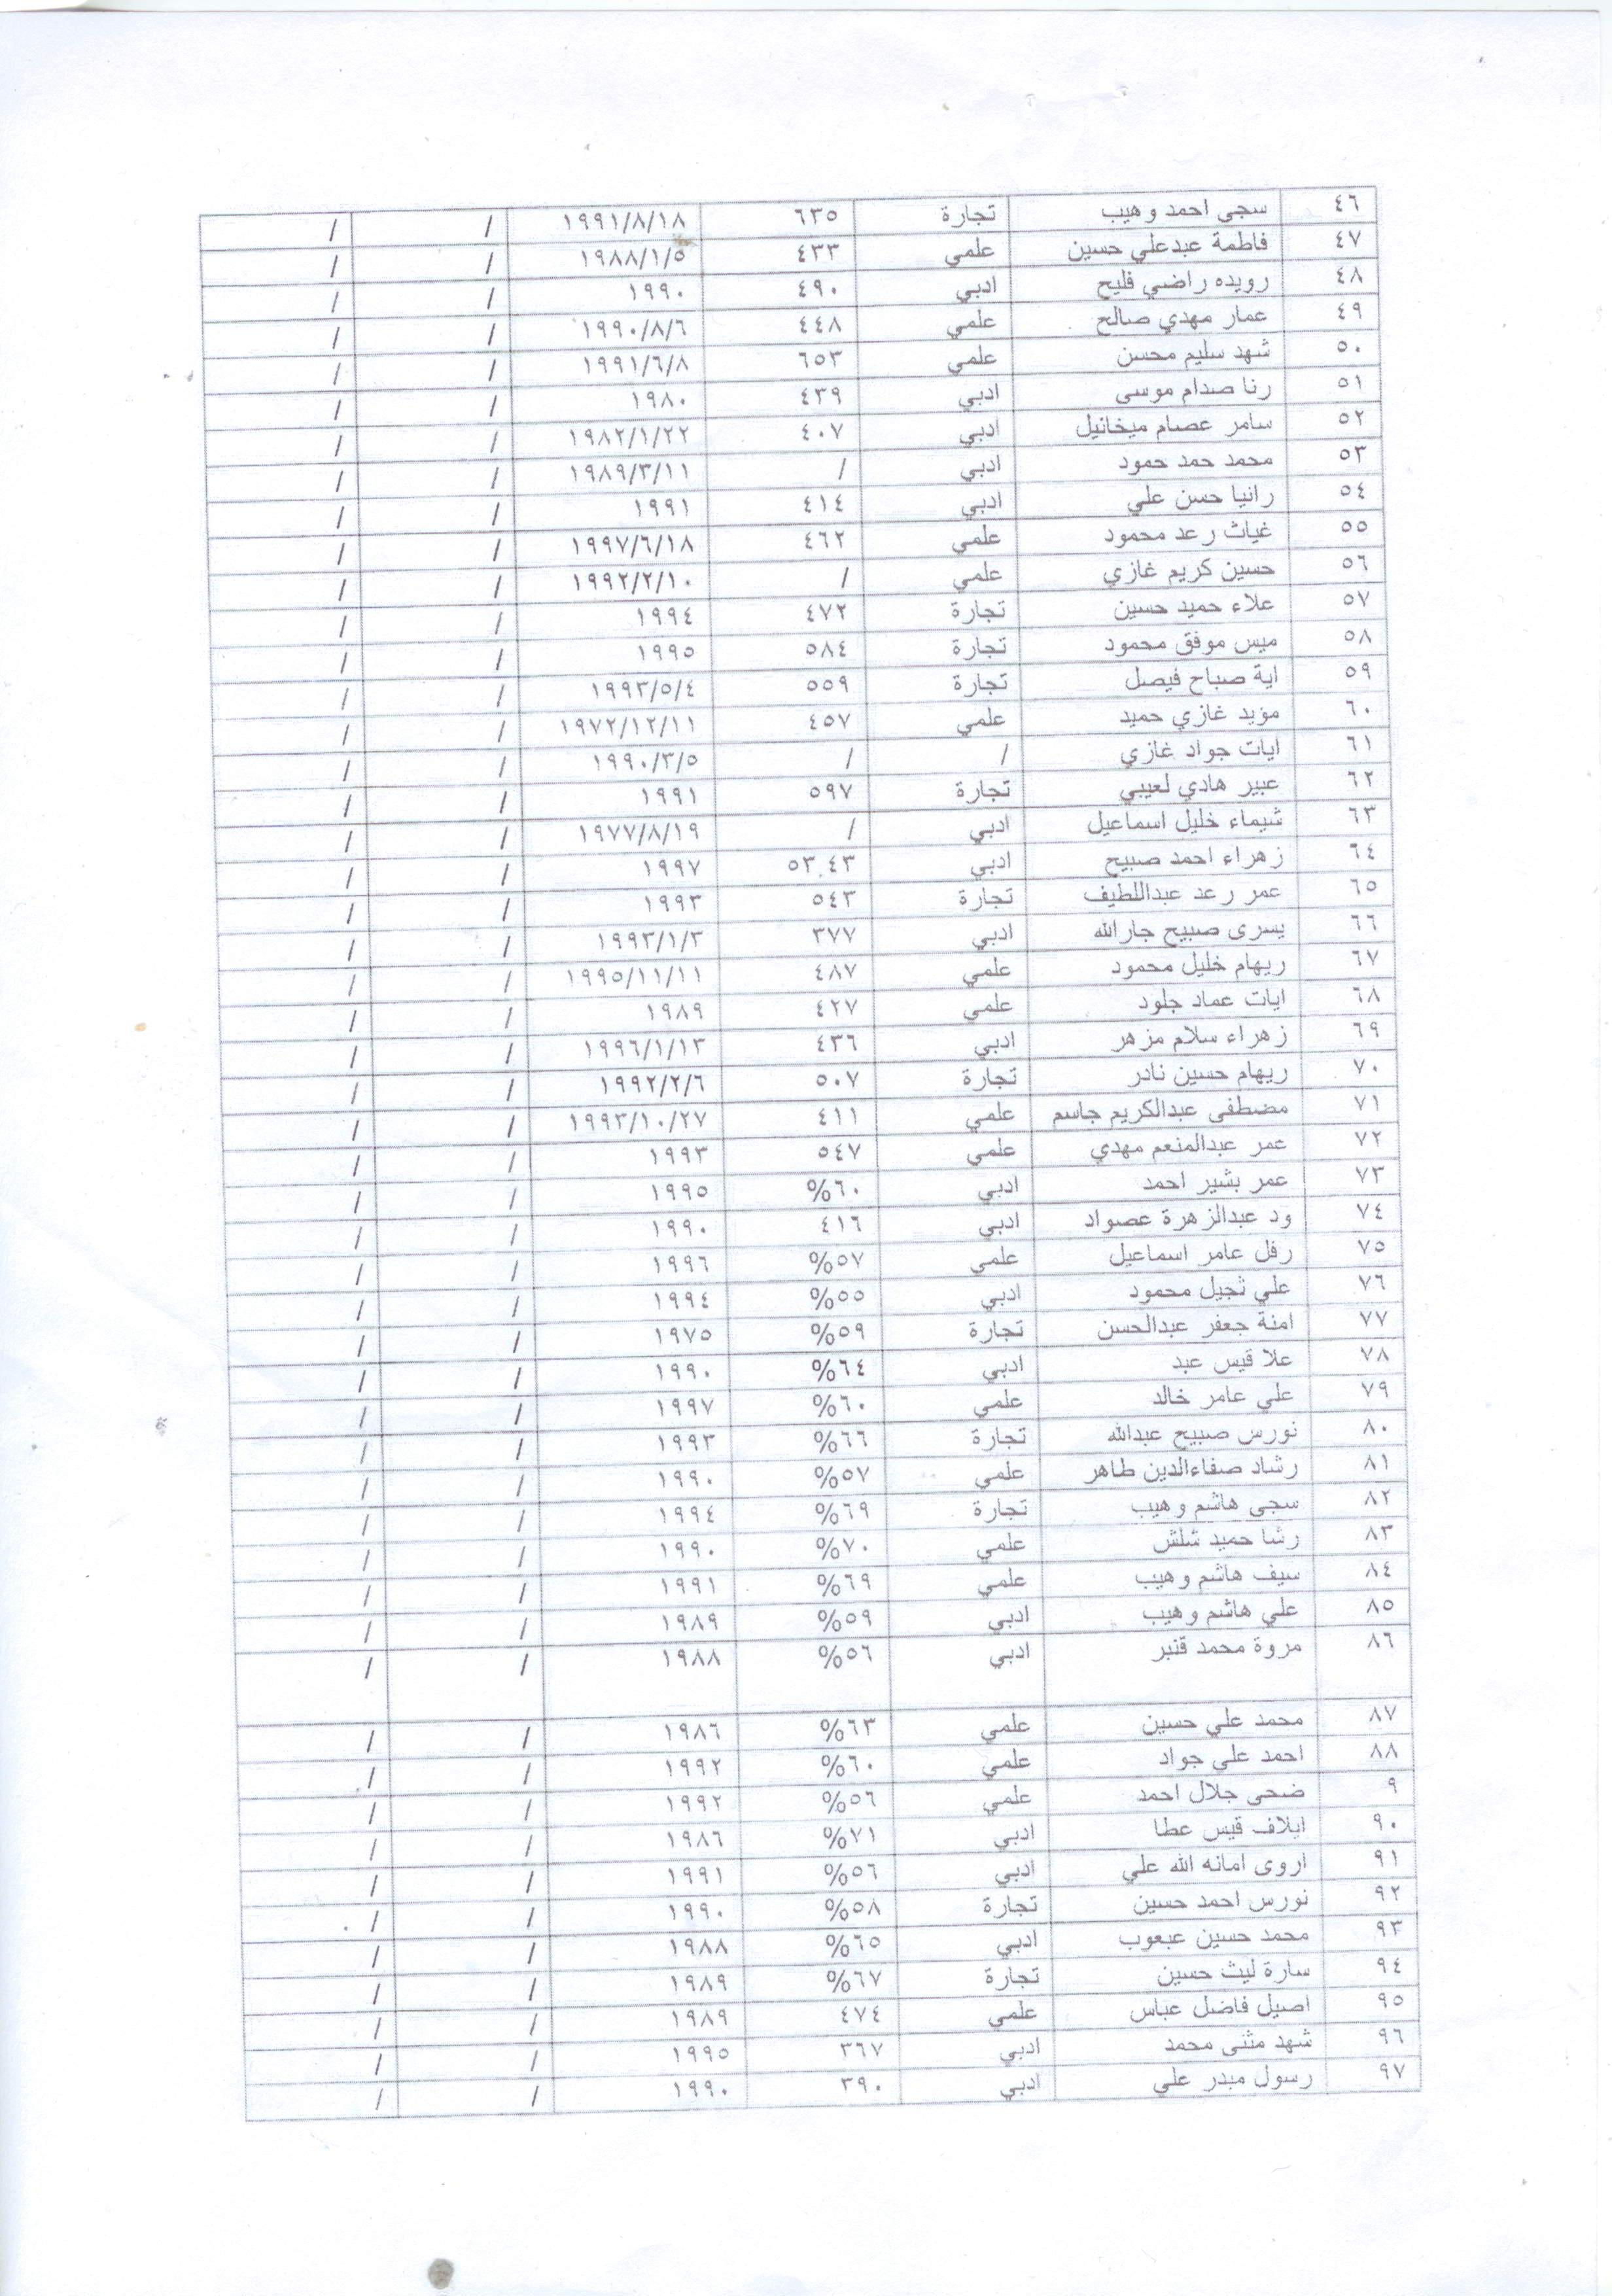 ٤٦ سجى احمد وهيب تجارة ٦٣٥ ١٩٩١/٨/١٨ / /
٤٧ فاطمة عبدعلي حسين علمي ٤٣٣ ١٩٨٨/١/٥ / /
٤٨ رويده راضي فليح ادبي ٤٩٠ ١٩٩٠ / /
٤٩ عمار مهدي صالح علمي ٤٤٨ ١٩٩٠/٨/٦ / /
٥٠ شهد سليم محسن علمي ٦٥٣ ١٩٩١/٦/٨ / /
٥١ رنا صدام موسى ادبي ٤٣٩ ١٩٨٠ / /
٥٢ سامر عصام ميخائيل ادبي ٤٠٧ ١٩٨٢/١/٢٢ / /
٥٣ محمد حمد حمود ادبي / ١٩٨٩/٣/١١ / /
٥٤ رانيا حسن علي ادبي ٤١٤ ١٩٩١ / /
٥٥ غياث رعد محمود علمي ٤٦٢ ١٩٩٧/٦/١٨ / /
٥٦ حسين كريم غازي علمي / ١٩٩٢/٢/١٠ / /
٥٧ علاء حميد حسين تجارة ٤٧٢ ١٩٩٤ / /
٥٨ ميس موفق محمود تجارة ٥٨٤ ١٩٩٥ / /
٥٩ اية صباح فيصل تجارة ٥٥٩ ١٩٩٣/٥/٤ / /
٦٠ مؤيد غازي حميد علمي ٤٥٧ ١٩٧٢/١٢/١١ / /
٦١ ايات جواد غازي / / ١٩٩٠/٣/٥ / /
٦٢ عبير هادي لعيبي تجارة ٥٩٧ ١٩٩١ / /
٦٣ شيماء خليل اسماعيل ادبي / ١٩٧٧/٨/١٩ / /
٦٤ زهراء احمد صبيح ادبي ٥٣,٤٣ ١٩٩٧ / /
٦٥ عمر رعد عبداللطيف تجارة ٥٤٣ ١٩٩٣ / /
٦٦ يسرى صبيح جارالله ادبي ٣٧٧ ١٩٩٣/١/٣ / /
٦٧ ريهام خليل محمود علمي ٤٨٧ ١٩٩٥/١١/١١ / /
٦٨ ايات عماد جلود علمي ٤٢٧ ١٩٨٩ / /
٦٩ زهراء سلام مزهر ادبي ٤٣٦ ١٩٩٦/١/١٣ / /
٧٠ ريهام حسين نادر تجارة ٥٠٧ ١٩٩٢/٢/٦ / /
٧١ مضطفى عبدالكريم جاسم علمي ٤١١ ١٩٩٣/١٠/٢٧ / /
٧٢ عمر عبدالمنعم مهدي علمي ٥٤٧ ١٩٩٣ / /
٧٣ عمر بشير احمد ادبي ٦٠% ١٩٩٥ / /
٧٤ ود عبدالزهرة عصواد ادبي ٤١٦ ١٩٩٠ / /
٧٥ رفل عامر اسماعيل علمي ٥٧% ١٩٩٦ / /
٧٦ علي ثجيل محمود ادبي ٥٥% ١٩٩٤ / /
٧٧ امنة جعفر عبدالحسن تجارة ٥٩% ١٩٧٥ / /
٧٨ علا قيس عبد ادبي ٦٤% ١٩٩٠ / /
٧٩ علي عامر خالد علمي ٦٠% ١٩٩٧ / /
٨٠ نورس صبيح عبدالله تجارة ٦٦% ١٩٩٣ / /
٨١ رشاد صفاءالدين طاهر علمي ٥٧% ١٩٩٠ / /
٨٢ سجى هاشم وهيب تجارة ٦٩% ١٩٩٤ / /
٨٣ رشا حميد شلش علمي ٧٠% ١٩٩٠ / /
٨٤ سيف هاشم وهيب علمي ٦٩% ١٩٩١ / /
٨٥ علي هاشم وهيب ادبي ٥٩% ١٩٨٩ / /
٨٦ مروة محمد قنبر ادبي ٥٦% ١٩٨٨ / /
٨٧ محمد علي حسين علمي ٦٣% ١٩٨٦ / /
٨٨ احمد علي جواد علمي ٦٠% ١٩٩٢ / /
٩ ضحى جلال احمد علمي ٥٦% ١٩٩٢ / /
٩٠ ايلاف قيس عطا ادبي ٧١% ١٩٨٦ / /
٩١ اروى امانه الله علي ادبي ٥٦% ١٩٩١ / /
٩٢ نورس احمد حسين تجارة ٥٨% ١٩٩٠ / /
٩٣ محمد حسين عبعوب ادبي ٦٥% ١٩٨٨ / /
٩٤ سارة ليث حسين تجارة ٦٧% ١٩٨٩ / /
٩٥ اصيل فاضل عباس علمي ٤٧٤ ١٩٨٩ / /
٩٦ شهد مثنى محمد ادبي ٣٦٧ ١٩٩٥ / /
٩٧ رسول مبدر علي ادبي ٣٩٠ ١٩٩٠ / /